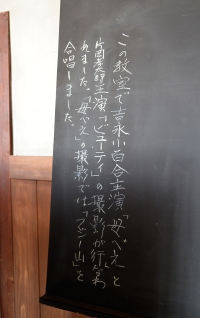 この教室で吉永小百合主演「母べえ」と
片岡孝太郎主演「ビューティ」の撮影が行なわ
れました。「母べえ」の撮影では「フジ山」を
合唱しました。